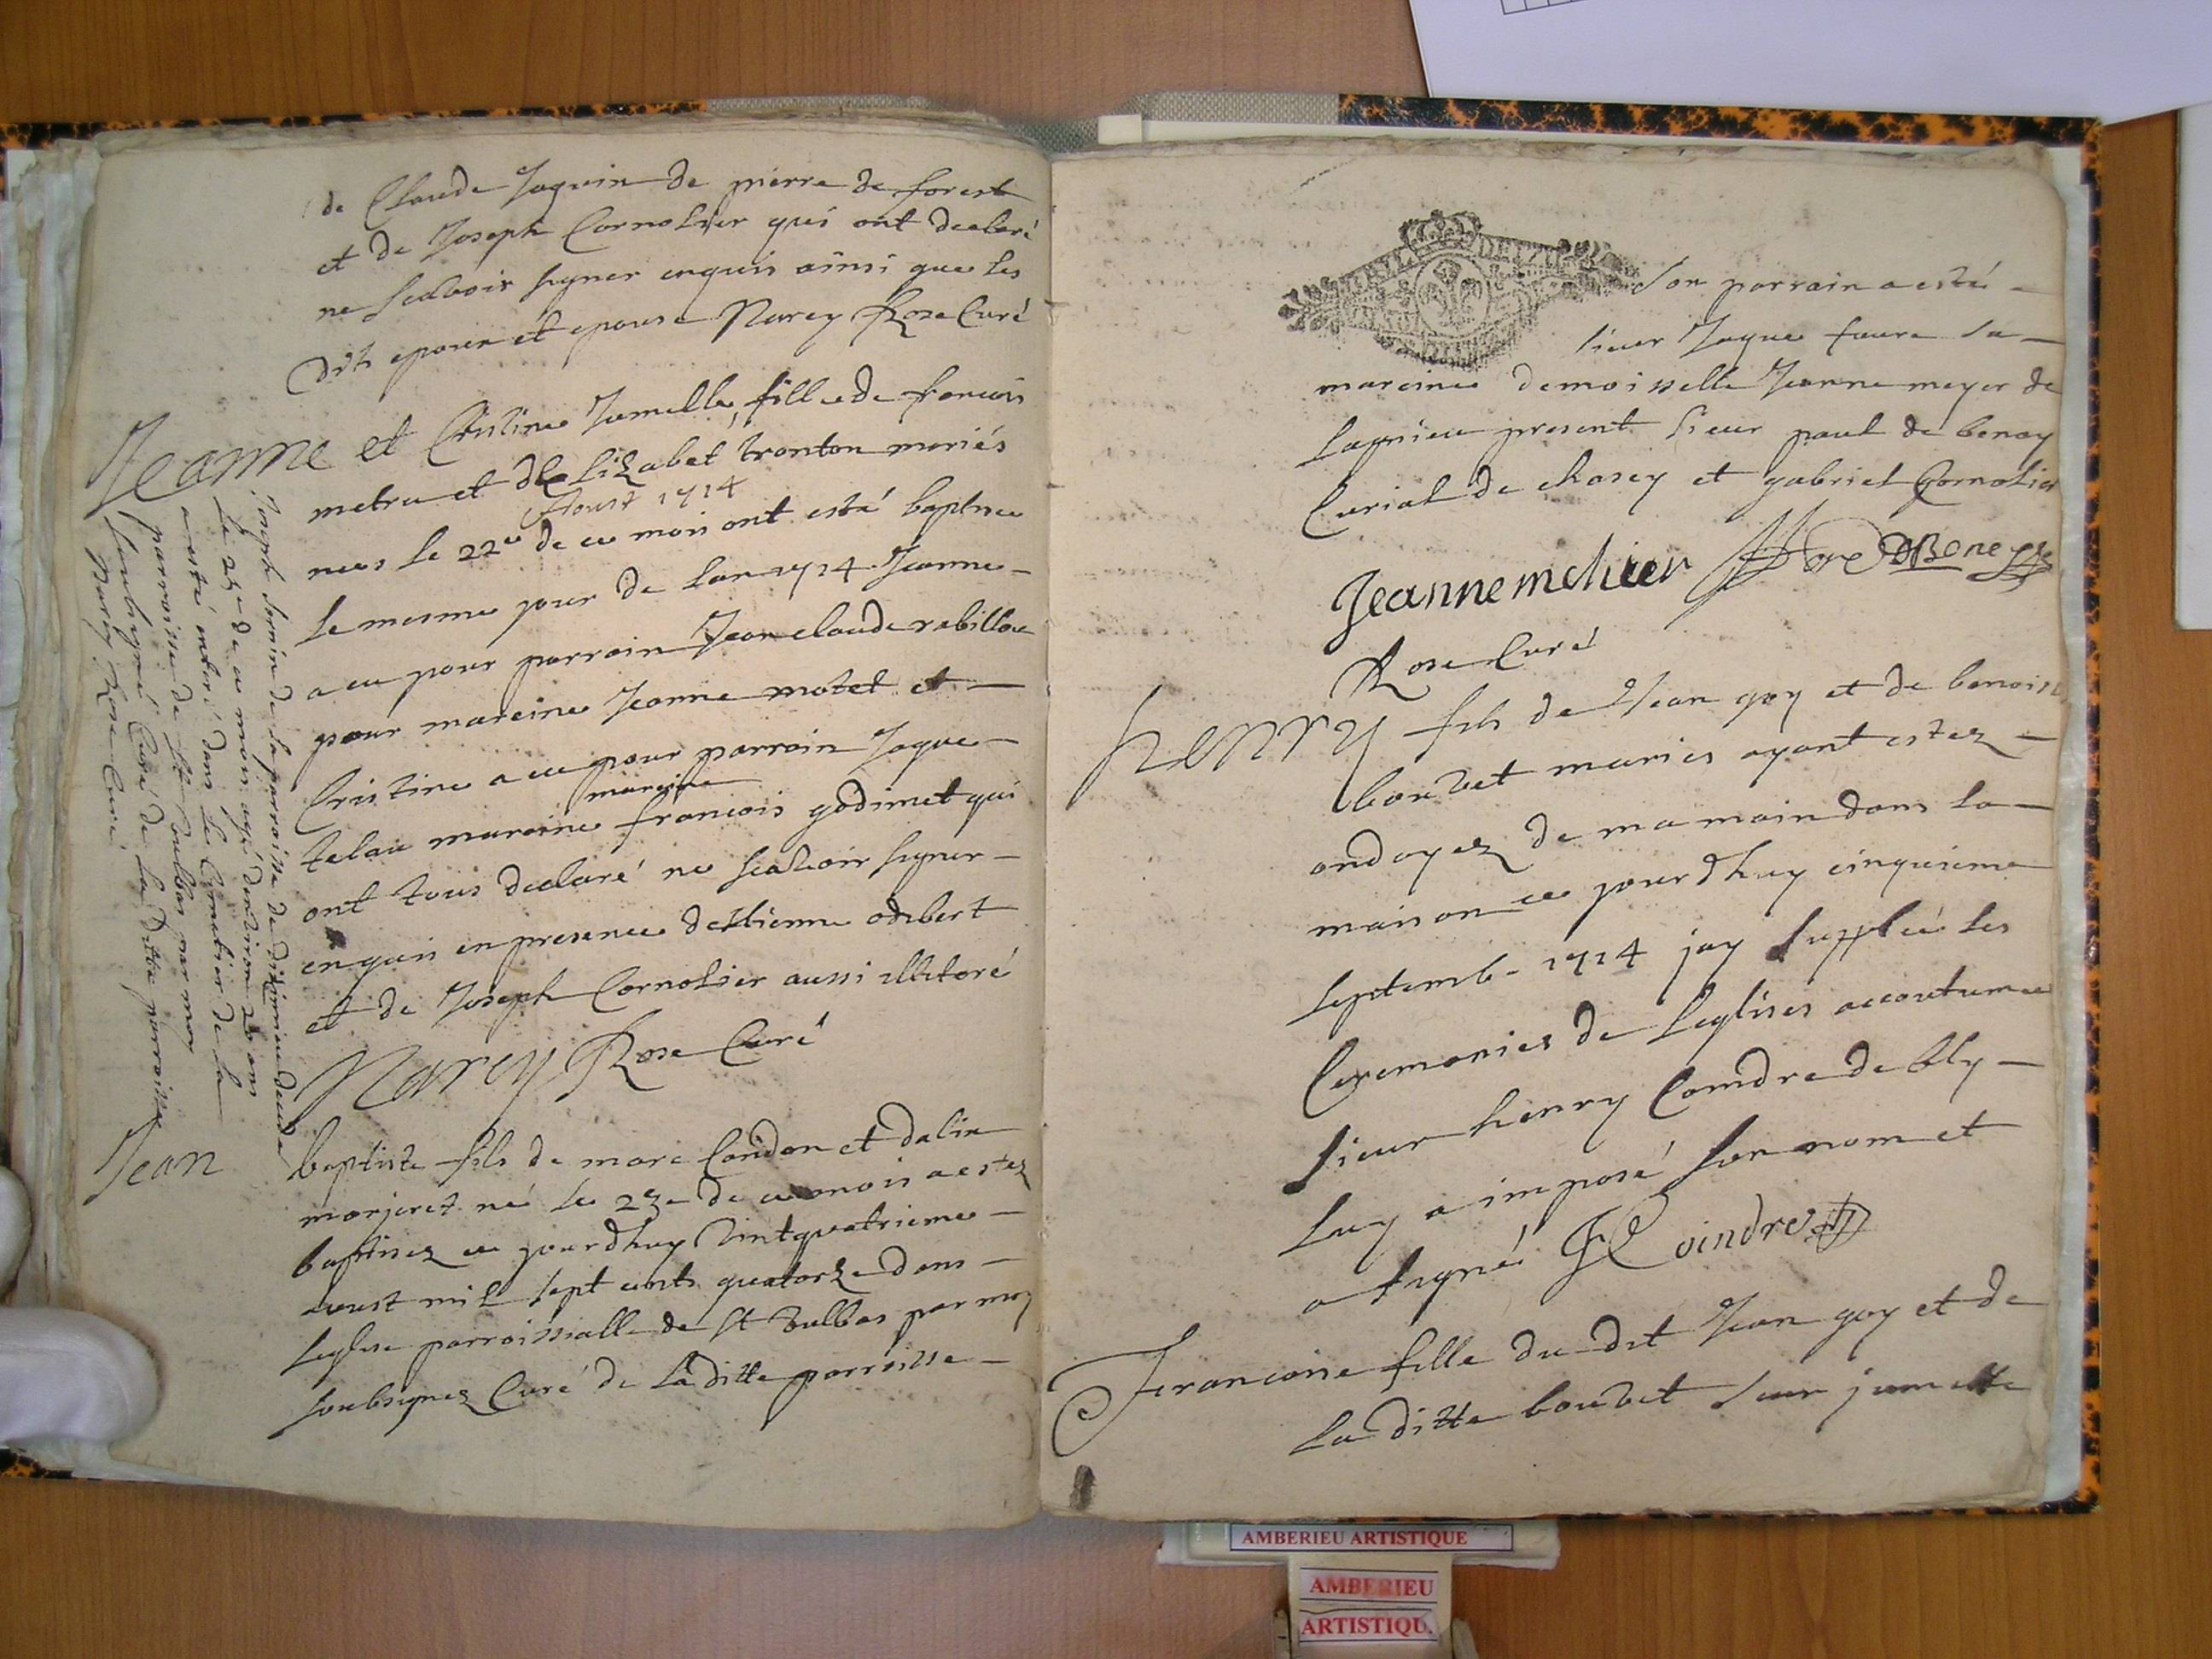 de Claude Jaquin de pierre de forest
et de Joseph Cornolier qui ont declaré
ne scavoir signer enquis ainsi que les
dits epoux et epouse Narcy Rose Curé
Jeanne et Cristine Jumelle, fille de francois
metra et de Elizabet tronton mariés
Aoust 1714
nees le 22e de ce mois ont esté baptisee
le mesme jour de lan 1714 Jeanne
a eu pour parrain Jean claude rabillou
pour mareine Jeanne motet et
Cristine a eu pour parrain Jaque
mareine
telau mareine francois godimet qui
ont tous declaré ne scavoir signer
enquis en presence destienne odibert
et de Joseph Cornolier aussi illitoré
Narcy Rose Curé
Jean baptiste fils de marc Condon et dalin
marjeret né le 23e de ce mois a estez
baptisez ce jourdhuy vintquatrieme
aoust mil sept cents quatorze dans
leglise parroissialle de St Vulbas par moy
soubsignez Curé de la ditte parroisse
de la parroisse de
le 25e de ce mois agé denviron 26 ans
a esté enteré dans le Cymetier de la
parroisse de St Voulbas par moy
soubsigné Curé de la ditte parroisse
Narcy Rose Curé
GEN DE
son parrain a esté
sieur Jaque faure sa
mareine demoisselle Jeanne meyer de
lagnieu present sieur paul de benay
Curial de chasey et gabriel Cornolier
Jeanne melieer
Rose Curé
henry fils de Jean goy et de benoiste
bouvet maries ayant estez
ondoyez de ma main dans la
maison ce jourdhuy cinquieme
septemb. 1714 jay supplée les
Ceremonies de leglises accoutumee
sieur henry Comdre de bly
luy a imposé son nom et
a signé H Coindre
Francoise fille du dit Jean goy et de
la ditte bouvet seur jumelle
AMBERIEU ARTISTIQUE
AMBERIEU
ARTISTIQU